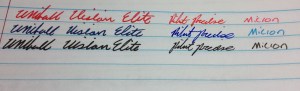 Uniball Vision Elite Pilot Precise Micron
Uniball Vision Elite Pilot Precise Micron
Uniball Vision Elite Pilot Precise Micron